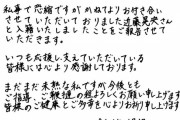 私事で恐縮ですがかねてよりお付き合い
させていただいておりました近藤晃央さん
と入籍いたしましたことをご報告させて
いただきます。
いつも応援し支えていただいている方
皆様には心より感謝しております。
まだまだ未熟な私ですが今後とも
ご指導、ご鞭撻の程よろしくお願い申し上げます
皆様のご健康とご多幸を心よりお祈り申し上げます